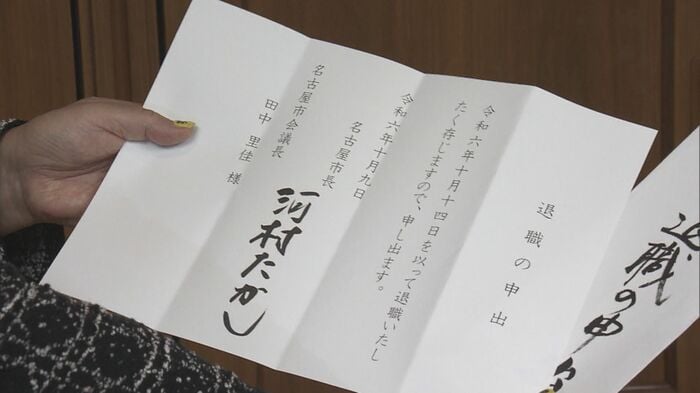 退職の申出
令和六年十月十四日を以って退職いたし
たく存じますので、申し出ます。
令和六年十月九日
名古屋市長
河村たかし
名古屋市会議長
田中里佳様
退職の申